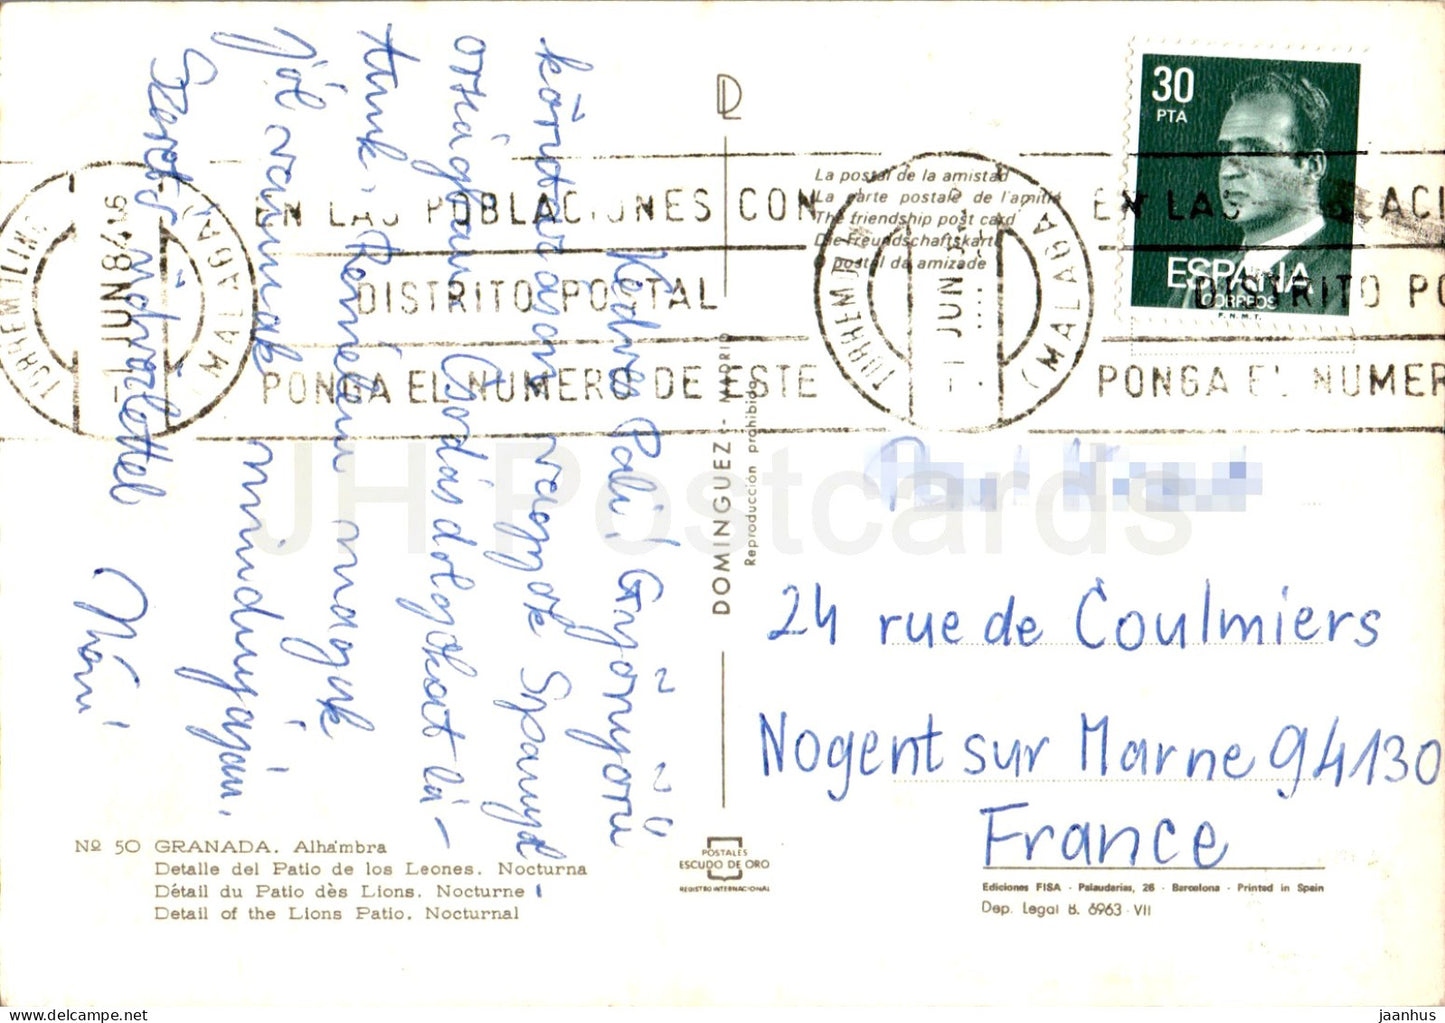 Kedves Pali! Gyönyörű
körutazáson vagyok Spanyol
országban. Csodás dolgokat lá-
ttunk. Remélem maguk
jól vannak mindnyájan.
Szeretö üdvözlettel
30
PTA
ESPAÑA
CORREOS
F.N.M.T.
La postal de la amistad
La carte postale de l'amitié
The friendship post card
Die Freundschaftskarte
postal da amizade
TORREMOLINOS
(MALAGA)
-1 JUN 84
EN LAS POBLACIONES CON
DISTRITO POSTAL
PONGA EL NUMERO DE ESTE
TORREMOLINOS
(MALAGA)
-1 JUN
EN LAS POBLACI
DISTRITO PO
PONGA EL NUMER
DOMINGUEZ - MADRID
Reproducción prohibida
24 rue de Coulmiers
Nogent sur Marne 94130
France
Nº 50 GRANADA. Alhambra
Detalle del Patio de los Leones. Nocturna
Détail du Patio dès Lions. Nocturne
Detail of the Lions Patio. Nocturnal
POSTALES
ESCUDO DE ORO
REGISTRO INTERNACIONAL
Ediciones FISA - Palaudarias, 26 - Barcelona - Printed in Spain
Dep. Legal B. 6963 - VII
JH Postcards
jaanhus
HipPostcard.com